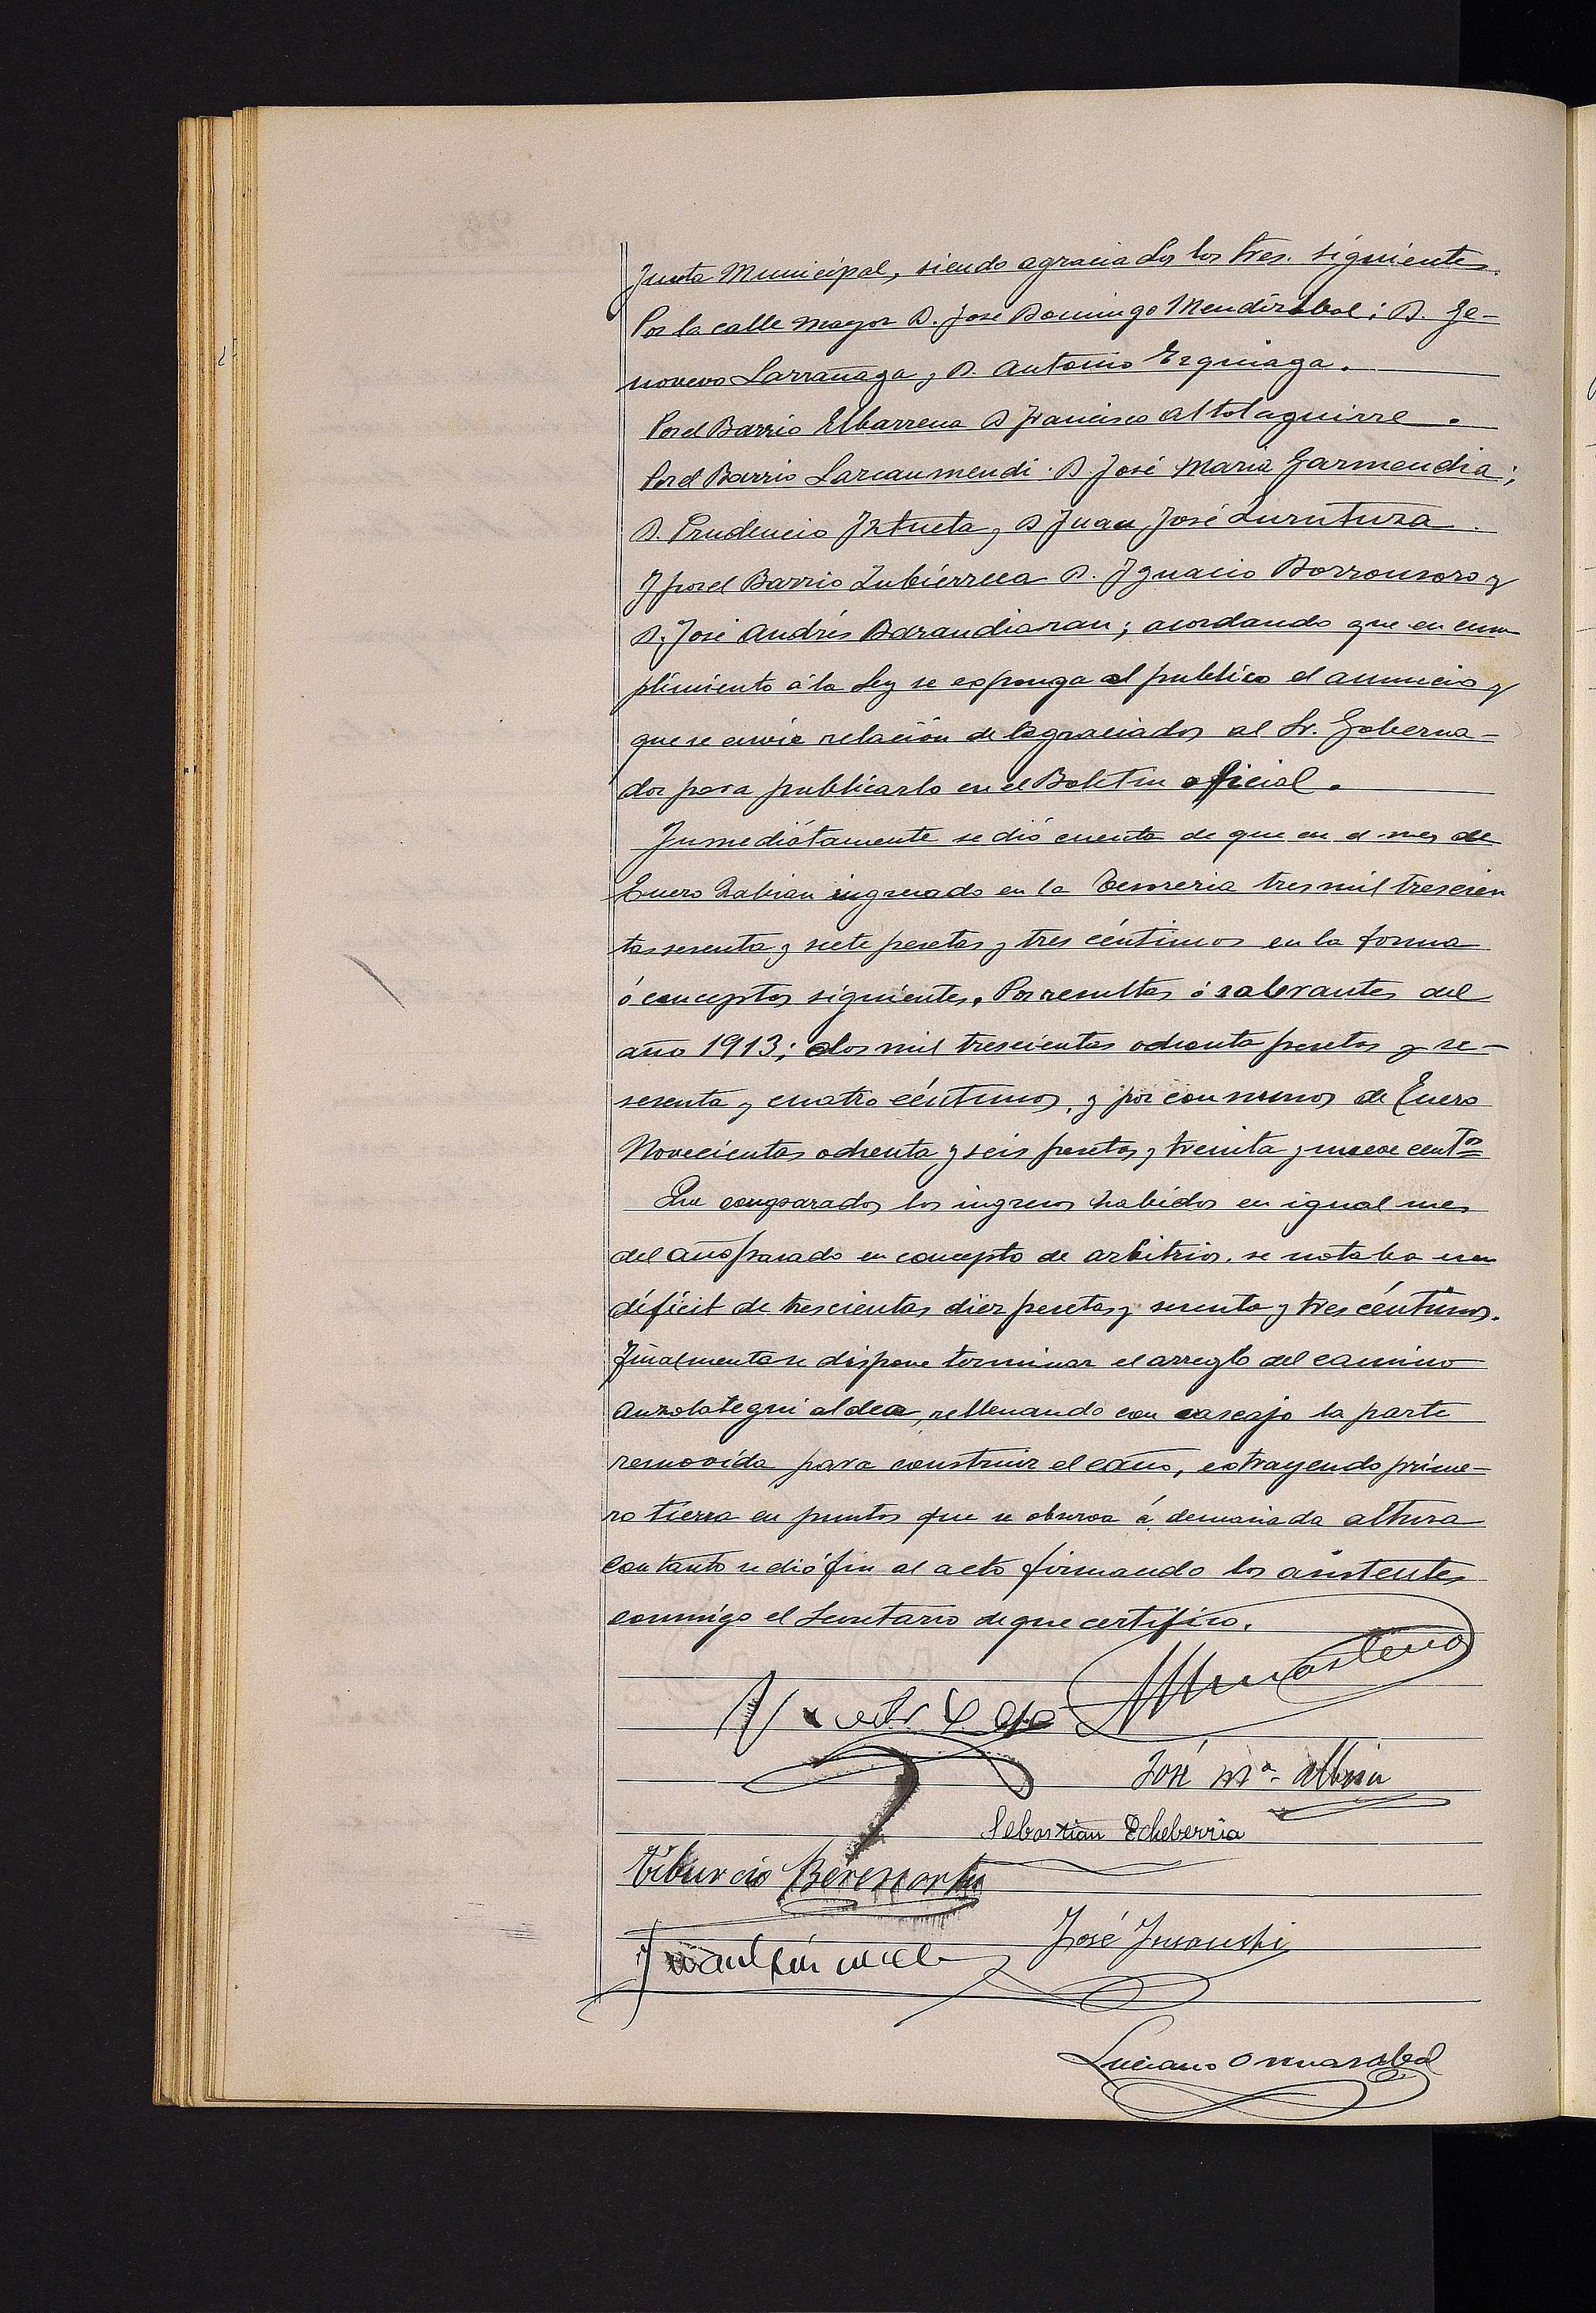 Junta Municipal, siendo agraciados los tres. siguientes.
Por la calle mayor D. José Domingo Mendizabal; D. Ge-
novevo Larrañaga, D. Antonio Ezquiaga.
Por el Barrio Elbarrena D Francisco Altolaguirre.
Por el Barrio Larcaumendi. D. José Maria Garmendia;
D. Prudencio Iztueta, D Juan José Zurutuza.
Y por el Barrio Zubierreca D. Ignacio Borronsoro y
D. José Andrés Barandiaran; acordando que en cum
plimiento á la Ley se esponga al publico el anuncio y
que se envie relación de los agraciados al Sr. Goberna-
dor para publicarlo en el Boletin oficial.
Inmediátamente se dió cuenta de que en el mes de
Enero habian ingresado en la Tesoreria tres mil trescien
tas sesenta y siete pesetas y tres céntimos en la forma
ó conceptos siguientes. Por resultas ó sobrantes del
año 1913; dos mil trescientas ochenta pesetas y se-
sesenta y cuatro céntimos, y por consumos de Enero
Novecientas ochenta y seis pesetas y treinta y nueve centos
Que comparados los ingresos habidos en igual mes
del año pasado en concepto de arbitrios. se notaba un
déficit de trescientas diez pesetas y sesenta y tres céntimos.
Finalmente se dispone terminar el arreglo del camino
Auzolategui aldea, rellenando con cascajo la parte
removida para construir el caño, estrayendo prime-
ro tierra en puntos que se observa á demasiada altura
Con tanto se dió fin al acto firmando los asistentes
conmigo el Secretario de que certifico.
José Mª. Albisu
Sebastian Echeberria
Tiburcio
José
Luciano Ormazabal